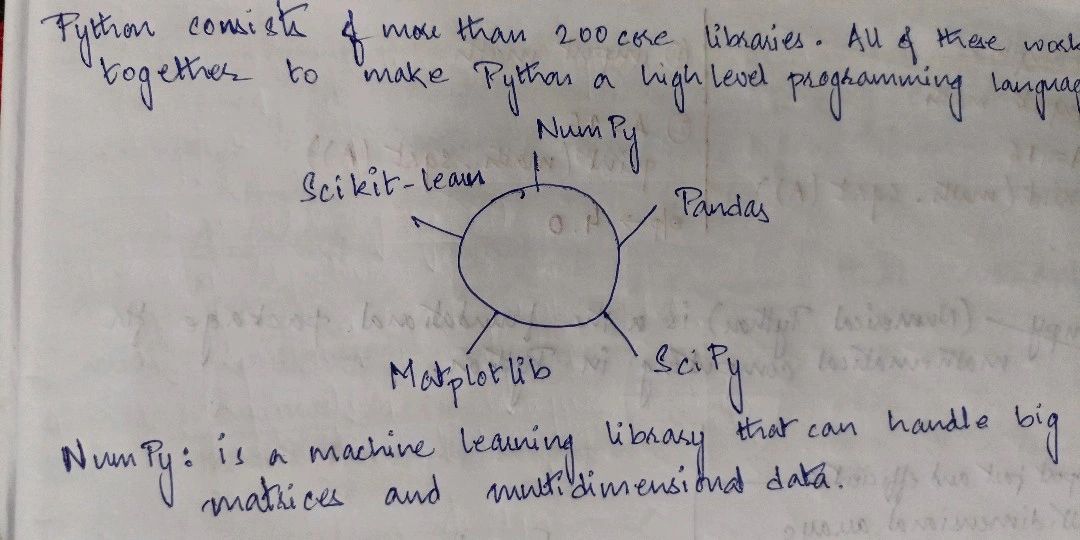 Python consists of more than 200 core libraries. All of these work
together to make Python a high level programming languag
NumPy
Scikit-learn
Pandas
Matplotlib
SciPy
NumPy: is a machine learning library that can handle big
matrices and multidimensional data.